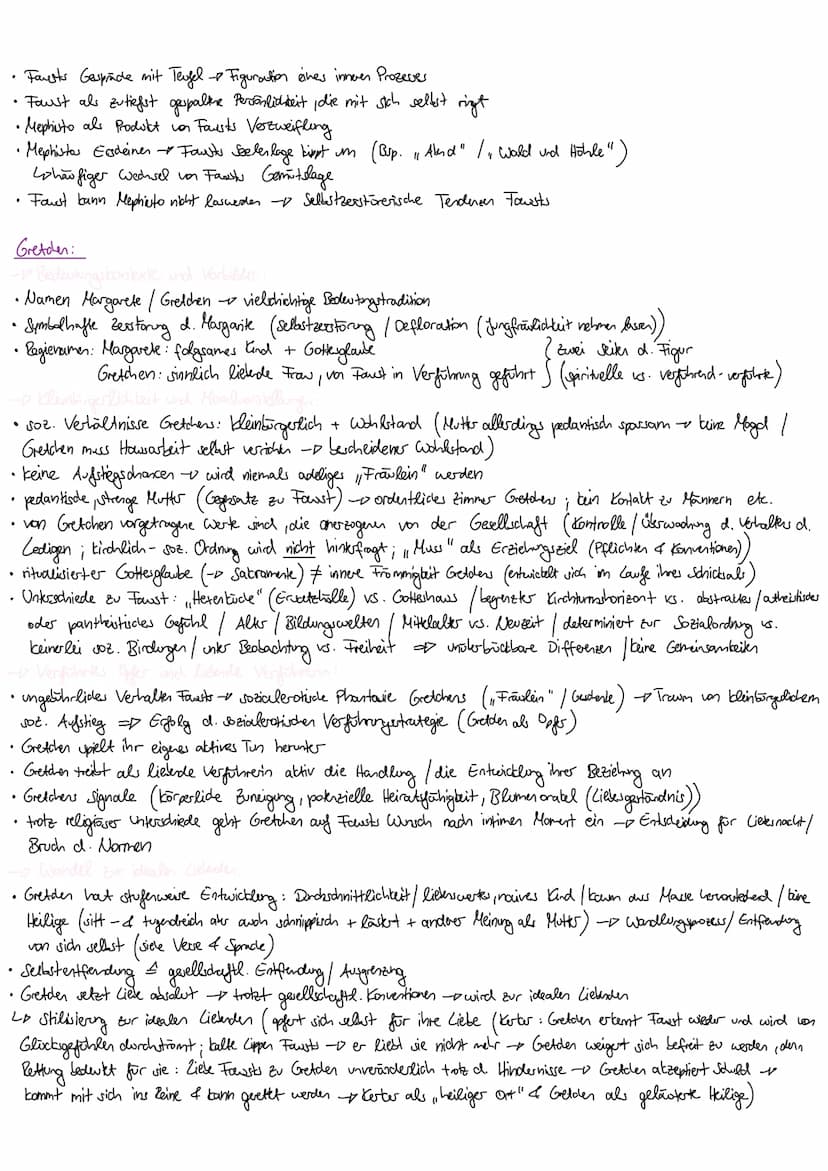 • Fausts Gespräche mit Teufel → Figuration eines inneren Prozesses
• Faust als zutiefst gespaltene Persönlichkeit, die mit sich selbst ringt
• Mephisto als Produkt von Fausts Verzweiflung
• Mephistos Erscheinen → Fausts Seelenlage kippt um (Bsp. „Abend" / „Wald und Höhle")
↳ häufiger Wechsel von Fausts Gemütslage
• Faust kann Mephisto nicht loswerden → Selbstzerstörerische Tendenzen Fausts
Gretchen:
→ Bedeutungskontexte und Vorbilder:
• Namen Margarete / Gretchen → vielschichtige Bedeutungstradition
• Symbolhafte Zerstörung d. Margarite (Selbstzerstörung / Defloration (Jungfräulichkeit nehmen lassen))
• Regienamen: Margarete: folgsames Kind + Gottesglaube } zwei Seiten d. Figur
Gretchen: sinnlich liebende Frau, von Faust in Verführung geführt } (spirituelle vs. verführend-verführte)
→ Kleinbürgerlichkeit und Moralvorstellung:
• soz. Verhältnisse Gretchens: kleinbürgerlich + Wohlstand (Mutter allerdings pedantisch sparsam → keine Magd /
Gretchen muss Hausarbeit selbst verrichten → bescheidener Wohlstand)
• keine Aufstiegschancen → wird niemals adeliges „Fräulein" werden
• pedantische, strenge Mutter (Gegensatz zu Faust) → ordentliches Zimmer Gretchens ; kein Kontakt zu Männern etc.
• von Gretchen vorgetragene Werte sind, die anerzogenen von der Gesellschaft (Kontrolle / Überwachung d. Verhaltens d.
Ledigen ; kirchlich- soz. Ordnung wird nicht hinterfragt ; „Muss" als Erziehungsziel (Pflichten & Konventionen))
• ritualisierter Gottesglaube (→ Sakramente) ≠ innere Frömmigkeit Gretchens (entwickelt sich im Laufe ihres Schicksals)
• Unterschiede zu Faust: „Hexenküche" (Ersatzhölle) vs. Gotteshaus / begrenzter Kirchturmshorizont vs. abstraktes / atheistisches
oder pantheistisches Gefühl / Alter / Bildungswelten / Mittelalter vs. Neuzeit / determiniert zur Sozialordnung vs.
keinerlei soz. Bindungen / unter Beobachtung vs. Freiheit ⇒ unüberbrückbare Differenzen / keine Gemeinsamkeiten
→ Verführtes Opfer und liebende Verführerin:
• ungebührliches Verhalten Fausts → sozialerotische Phantasie Gretchens („Fräulein" / Geschenke) → Traum von kleinbürgerlichem
soz. Aufstieg ⇒ Erfolg d. sozialerotischen Verführungsstrategie (Gretchen als Opfer)
• Gretchen spielt ihr eigenes aktives Tun herunter
• Gretchen treibt als liebende Verführerin aktiv die Handlung / die Entwicklung ihrer Beziehung an
• Gretchens Signale (körperliche Zuneigung, potenzielle Heiratsfähigkeit, Blumenorakel (Liebesgeständnis))
• trotz religiöser Unterschiede geht Gretchen auf Fausts Wunsch nach intimen Moment ein → Entscheidung für Liebesnacht /
Bruch d. Normen
→ Wandel zur idealen Liebenden:
• Gretchen hat stufenweise Entwicklung: Durchschnittlichkeit / liebenswertes, naives Kind / kaum aus Masse hervorstechend / keine
Heilige (sitt- & tugendreich aber auch schnippisch + lästert + anderer Meinung als Mutter) → Wandlungsprozess / Entfremdung
von sich selbst (siehe Verse & Sprache)
• Selbstentfremdung ≙ gesellschaftl. Entfremdung / Ausgrenzung
• Gretchen setzt Liebe absolut → trotzt gesellschaftl. Konventionen → wird zur idealen Liebenden
↳ Stilisierung zur idealen Liebenden (opfert sich selbst für ihre Liebe (Kerker: Gretchen erkennt Faust wieder und wird von
Glücksgefühlen durchströmt ; kalte Lippen Fausts → er liebt sie nicht mehr → Gretchen weigert sich befreit zu werden, denn
Rettung bedeutet für sie: Liebe Fausts zu Gretchen unveränderlich trotz d. Hindernisse → Gretchen akzeptiert Schuld →
kommt mit sich ins Reine & kann gerettet werden → Kerker als „heiliger Ort" & Gretchen als geläuterte Heilige)